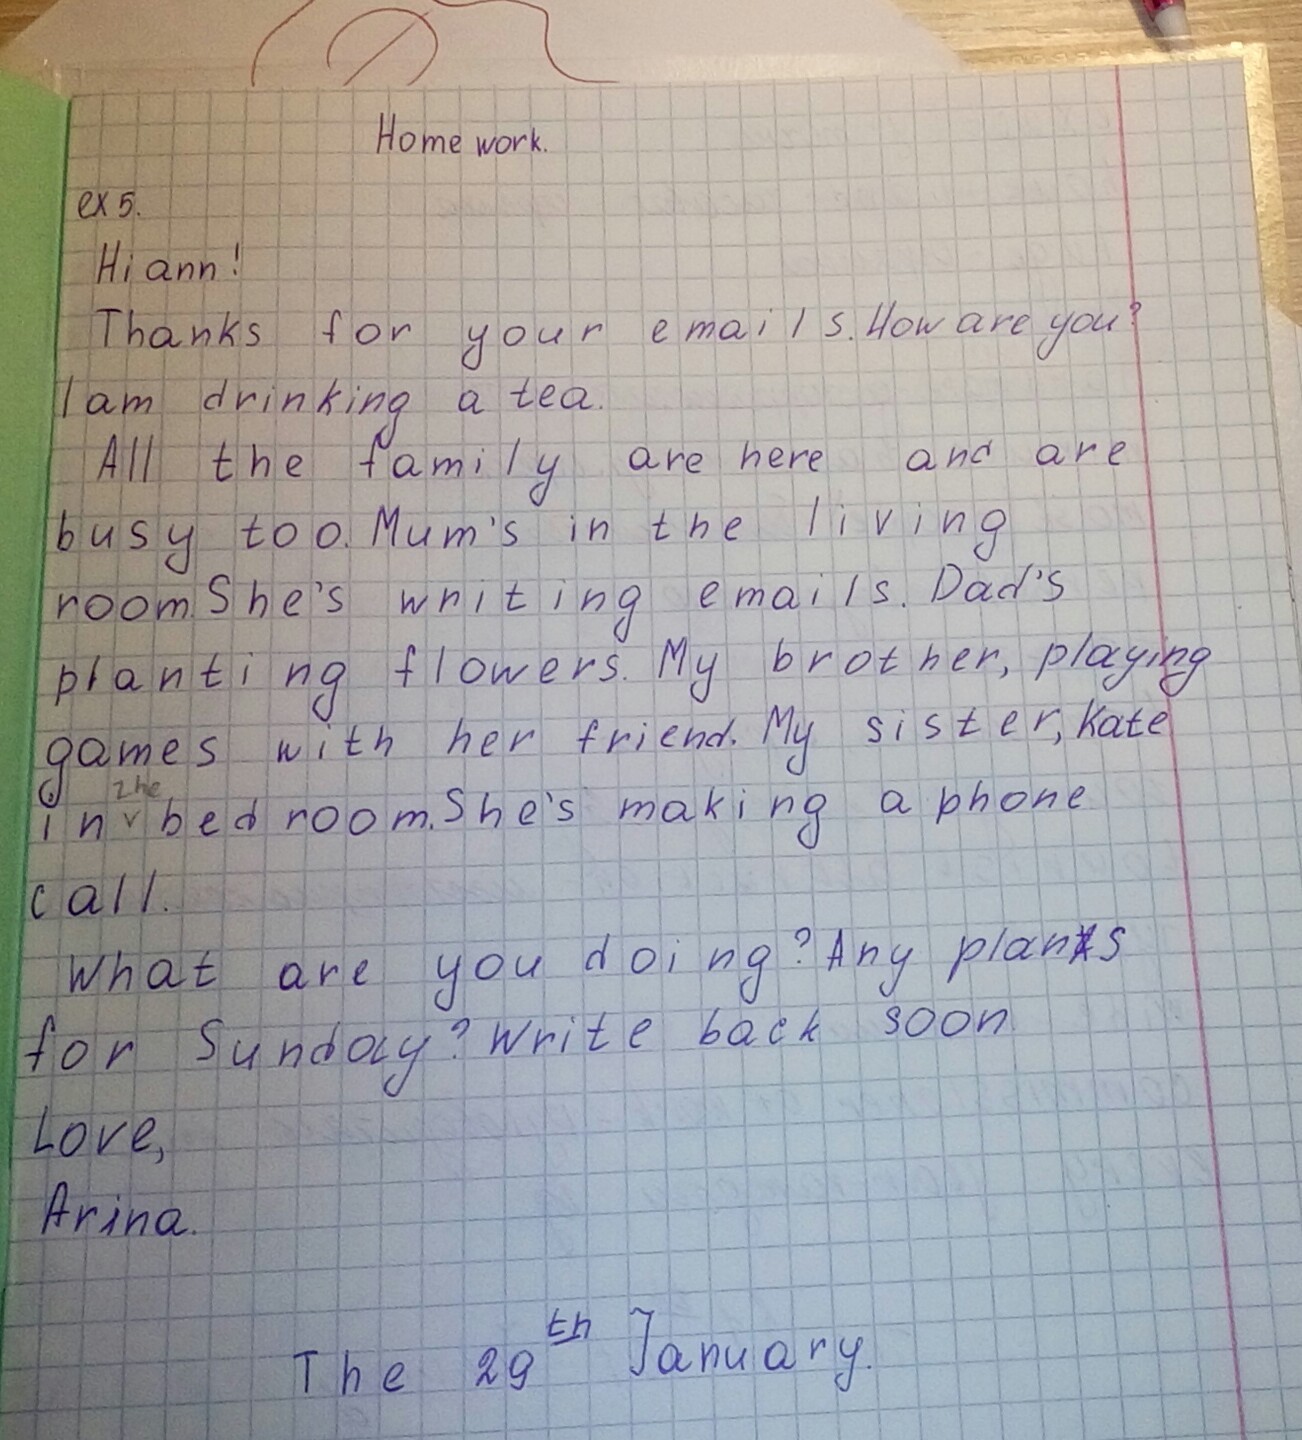 Home work.
ex 5.
Hi ann!
Thanks for your emails. How are you?
I am drinking a tea.
All the family are here and are
busy too. Mum's in the living
room. She's writing emails. Dad's
planting flowers. My brother, playing
games with her friend. My sister, Kate
the
in bedroom. She's making a phone
call.
What are you doing? Any plans
for Sunday? Write back soon
Love,
Arina.
The 29th January.